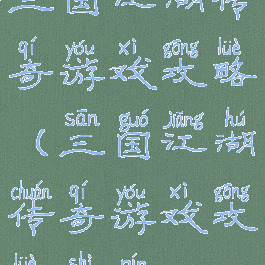 三国江湖传
qí yóu xì gōng lüè
奇游戏攻略
sān guó jiāng hú
(三国江湖
chuán qí yóu xì gōng
传奇游戏攻
lüè shì pín